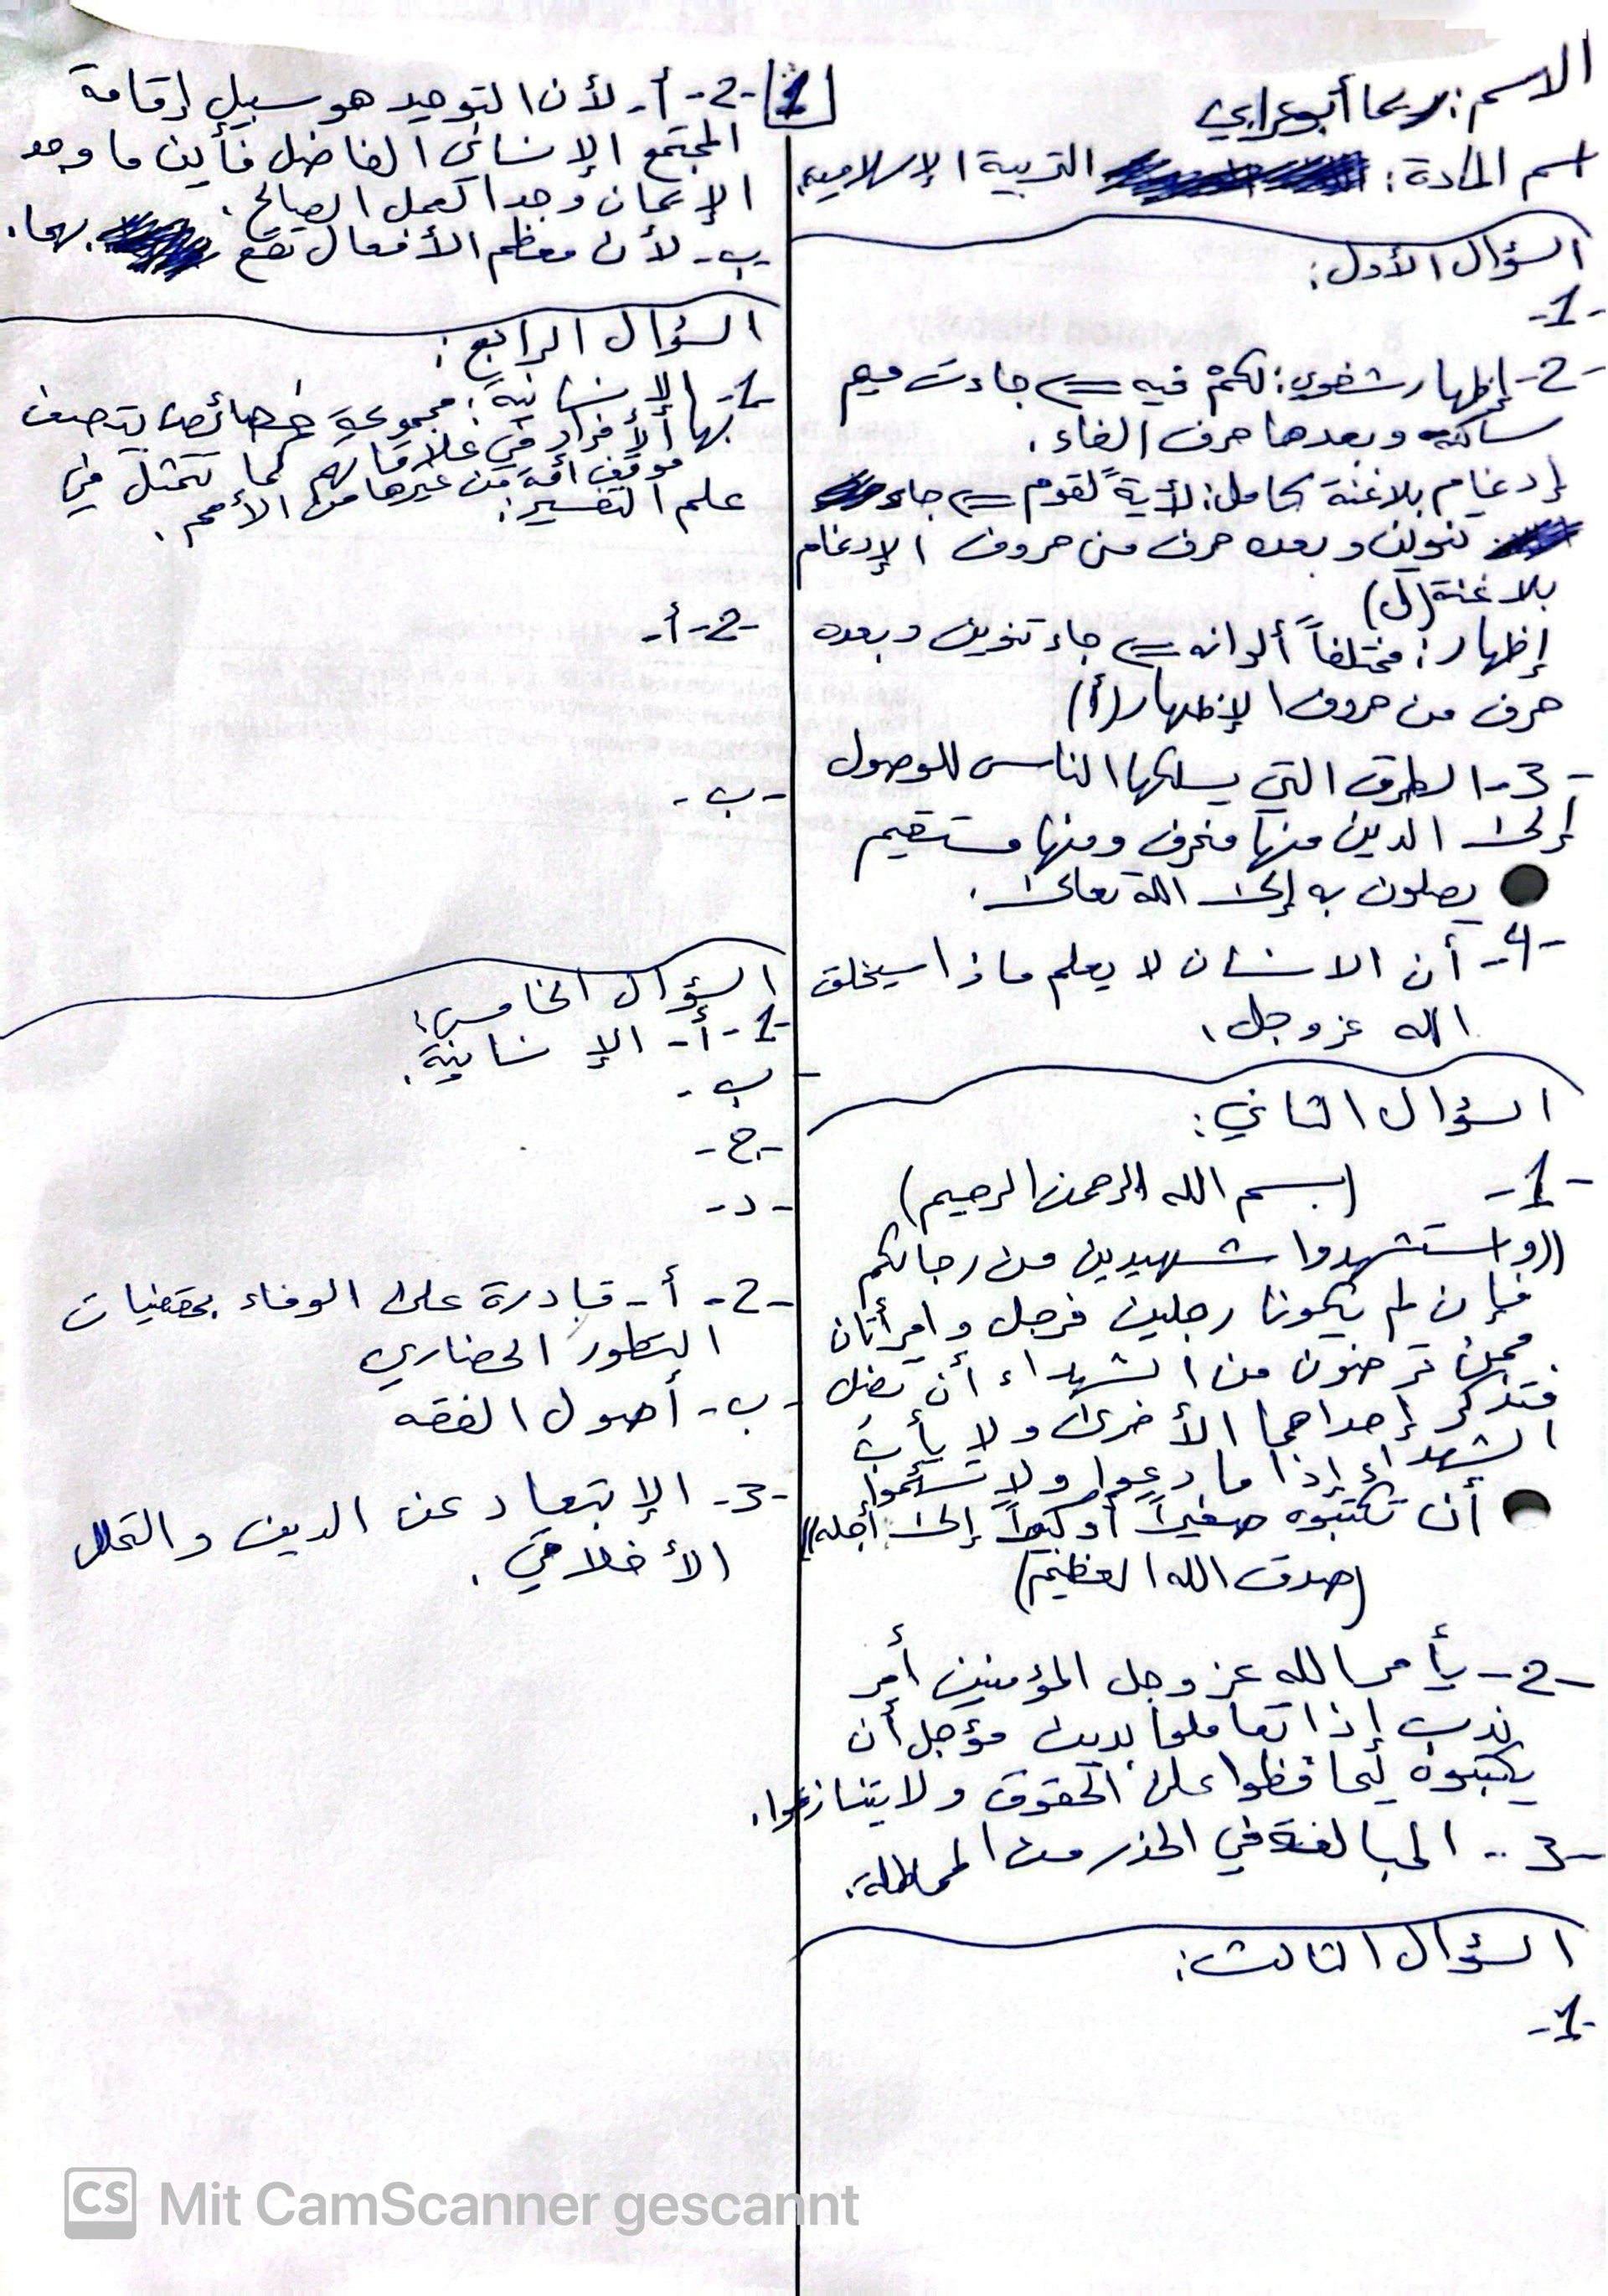 الاسم: ريما أبو عرابي
اسم المادة: التربية الإسلامية.
السؤال الأول:
-1-
-2- إظهار شفوي: لكمْ فيه <= جاءت ميم
ساكنة وبعدها حرف الفاء.
إدغام بلاغنة كامل: لأيةً لقوم <= جاء
تنوين وبعده حرف من حروف الإدغام
بلاغنة (ل)
إظهار: مختلفاً ألوانه <= جاء تنوين وبعده
حرف من حروف الإظهار (أ)
-3- الطرق التي يسلكها الناس للوصول
إلى الدين منها منحرف ومنها مستقيم
يصلون به إلى الله تعالى.
-4- أن الانسان لا يعلم ماذا سيخلق
الله عز وجل.
السؤال الثاني:
-1- (بسم الله الرحمن الرحيم)
((واستشهدوا شهيدين من رجالكم
فإن لم يكونا رجلين فرجل وامرأتان
ممن ترضون من الشهداء أن تضل
فتذكر إحداهما الأخرى ولا يأب
الشهداء إذا ما دعوا ولا تسئموا
أن تكتبوه صغيراً أو كبيراً إلى أجله))
(صدق الله العظيم)
-2- يأمر الله عز وجل المؤمنين أمر
ندب إذا تعاملوا بدين مؤجل أن
يكتبوه ليحافظوا على الحقوق ولا يتنازعوا.
-3- المبالغة في الحذر من المماطلة.
السؤال الثالث:
-1-
1
-2- أ- لأن التوحيد هو سبيل إقامة
المجتمع الإنساني الفاضل فأين ما وجد
الإيمان وجد العمل الصالح.
-ب- لأن معظم الأفعال تقع بهما.
السؤال الرابع:
-1- الإنسانية: مجموعة خصائص يتصف
بها الأفراد في علاقاتهم كما تتمثل في
موقف أمة من غيرها من الأمم.
علم التفسير:
-2- أ-
-ب-
السؤال الخامس:
-1- أ- الإنسانية.
ب-
-ج-
-د-
-2- أ- قادرة على الوفاء بمقتضيات
التطور الحضاري
-ب- أصول الفقه
-3- الإبتعاد عن الدين والتحلل
الأخلاقي.
CS Mit CamScanner gescannt